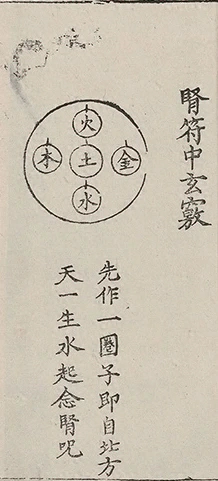 腎符中玄竅
火
木土金
水
先作一圈子即自北方
天一生水起念腎咒